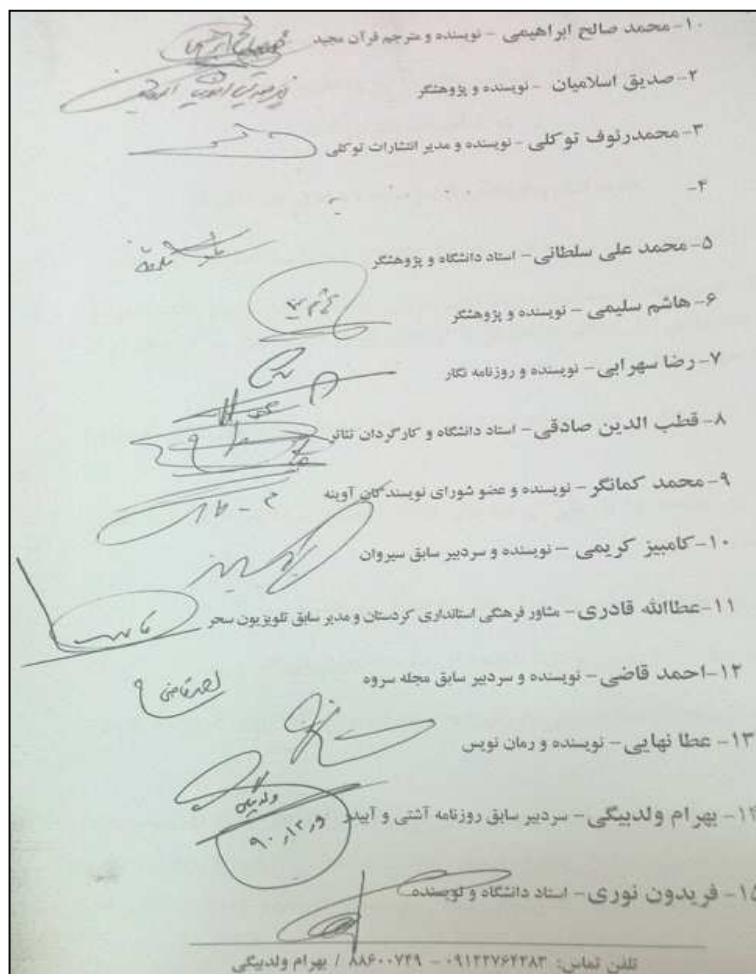 ۱۰- محمد صالح ابراهیمی - نویسنده و مترجم قرآن مجید
۲- صدیق اسلامیان - نویسنده و پژوهشگر
۳- محمدرئوف توکلی - نویسنده و مدیر انتشارات توکلی
۴-
۵- محمد علی سلطانی - استاد دانشگاه و پژوهشگر
۶- هاشم سلیمی - نویسنده و پژوهشگر
۷- رضا سهرابی - نویسنده و روزنامه نگار
۸- قطب الدین صادقی - استاد دانشگاه و کارگردان تئاتر
۹- محمد کمانگر - نویسنده و عضو شورای نویسندگان آوینه
۱۰- کامبیز کریمی - نویسنده و سردبیر سابق سیروان
۱۱- عطاالله قادری - مشاور فرهنگی استانداری کردستان و مدیر سابق تلویزیون سحر
۱۲- احمد قاضی - نویسنده و سردبیر سابق مجله سروه
احمد قاضی
۱۳- عطا نهایی - نویسنده و رمان نویس
۱۴- بهرام ولدبیگی - سردبیر سابق روزنامه آشتی و آبیدر
ولدبیگی
۹۰
۱۵- فریدون نوری - استاد دانشگاه و نویسنده
تلفن تماس: ۰۹۱۲۲۷۶۴۲۸۳ - ۸۸۶۰۰۷۴۹ / بهرام ولدبیگی